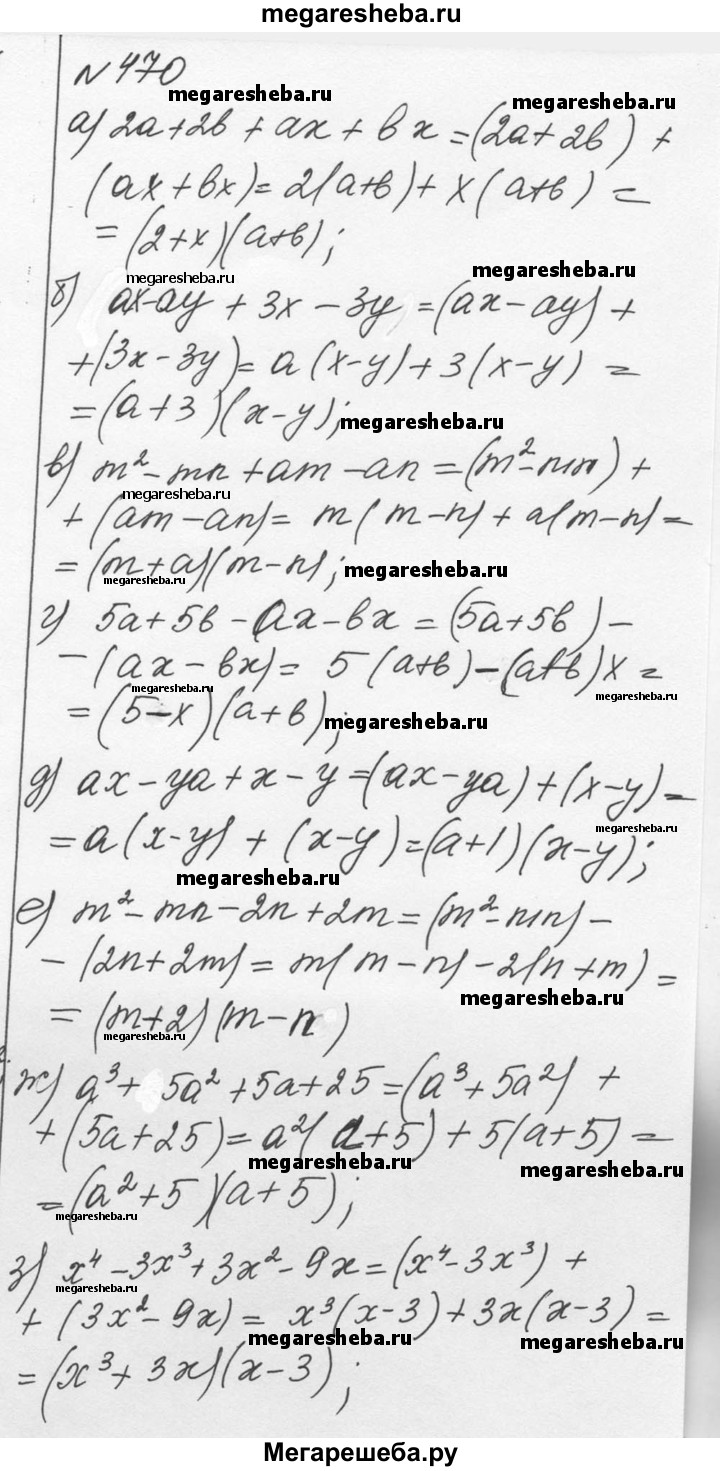 megaresheba.ru
№470
megaresheba.ru
megaresheba.ru
а) 2a+2b + ax + bx = (2a+2b) +
(ax+bx)= 2(a+b)+ x(a+b) =
= (2+x)(a+b);
megaresheba.ru
megaresheba.ru
б) ax-ay + 3x - 3y = (ax-ay) +
+(3x-3y)= a(x-y)+3(x-y) =
=(a+3)(x-y);
megaresheba.ru
в) m²-mn+am-an=(m²-mn)+
megaresheba.ru
+(am-an)= m(m-n)+a(m-n)=
=(m+a)(m-n);
megaresheba.ru
megaresheba.ru
г) 5a+5b-ax-bx = (5a+5b)-
-(ax-bx)= 5(a+b)-(a+b)x=
megaresheba.ru
megaresheba.ru
= (5-x)(a+b);
megaresheba.ru
д) ax-ya+x-y=(ax-ya)+(x-y)=
megaresheba.ru
=a(x-y)+(x-y)=(a+1)(x-y);
megaresheba.ru
е) m²-mn-2n+2m=(m²-mn)-
-(2n+2m)= m(m-n)-2(n+m)=
megaresheba.ru
= (m+2)(m-n)
megaresheba.ru
ж) a³+ 5a²+5a+25=(a³+5a²)+
+(5a+25)=a²(a+5)+5(a+5)=
megaresheba.ru
megaresheba.ru
=(a²+5)(a+5);
megaresheba.ru
з) x⁴-3x³+3x²-9x=(x⁴-3x³)+
megaresheba.ru
+(3x²-9x)= x³(x-3)+3x(x-3)=
megaresheba.ru
megaresheba.ru
=(x³+3x)(x-3);
Мегарешеба.ру